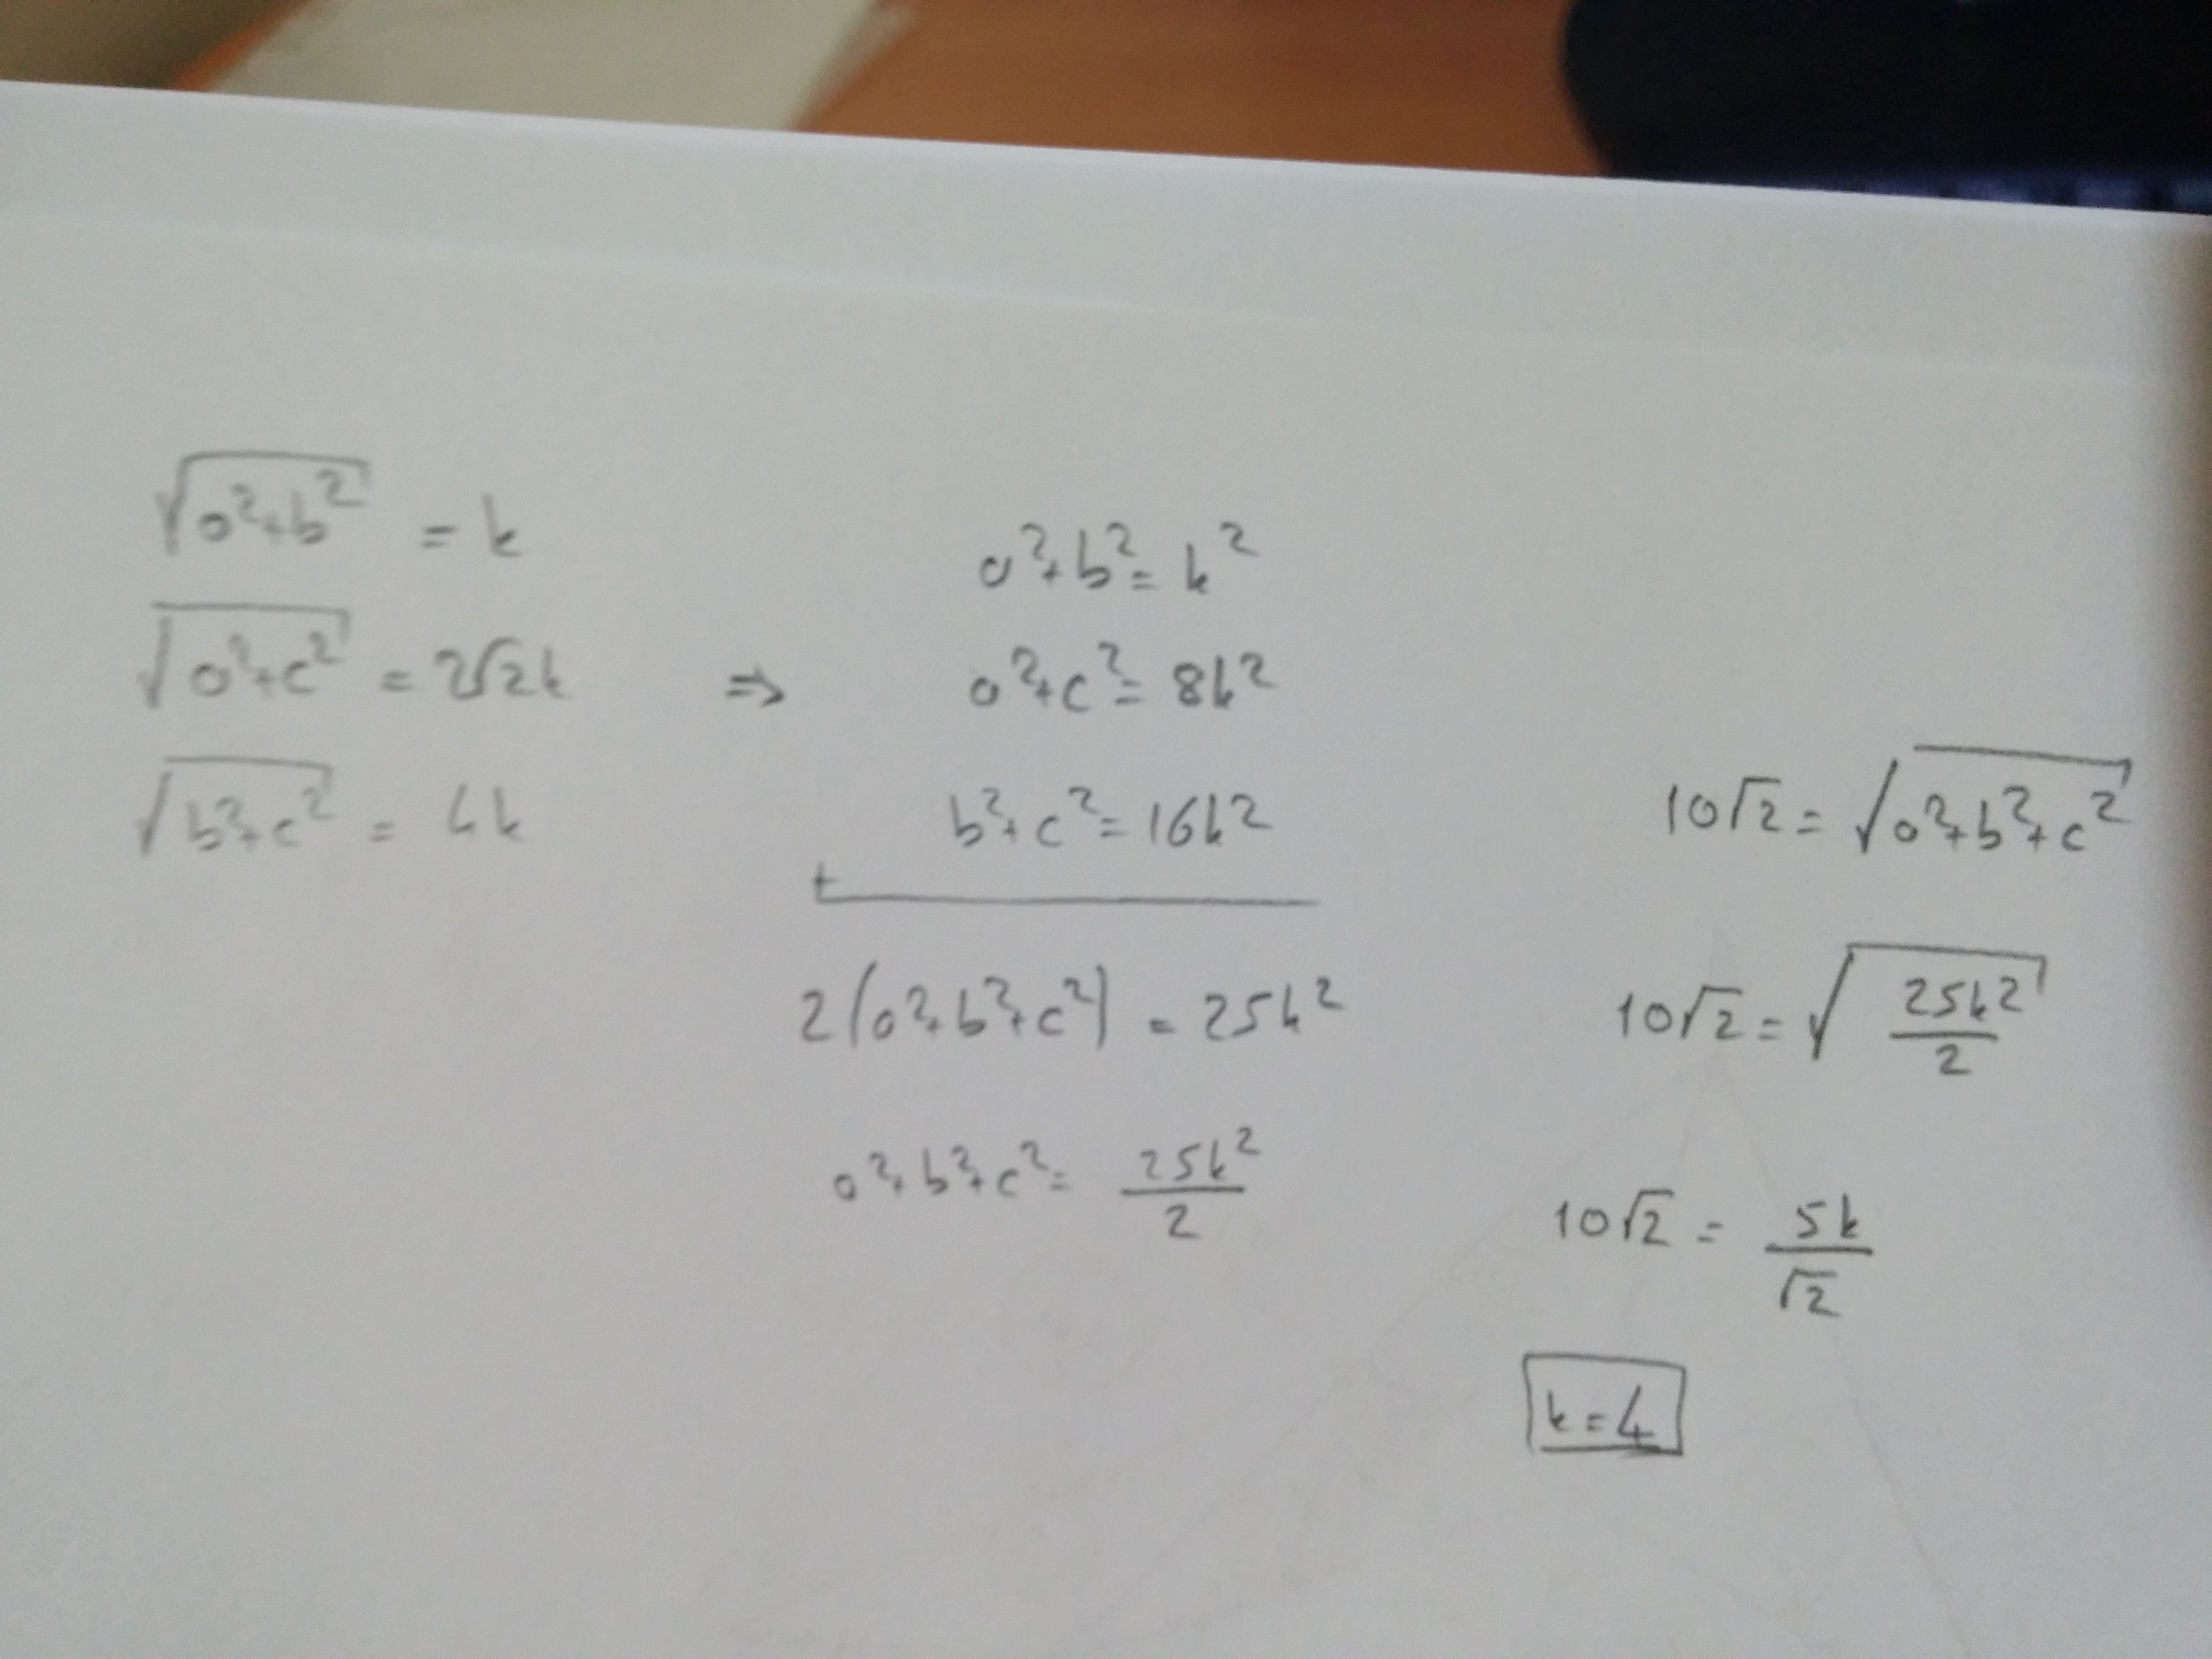 √(a²+b²) = k
√(a²+c²) = 2√2k
√(b²+c²) = 4k
⇒
a²+b² = k²
a²+c² = 8k²
b²+c² = 16k²
+
2(a²+b²+c²) = 25k²
a²+b²+c² = 25k²/2
10√2 = √(a²+b²+c²)
10√2 = √(25k²/2)
10√2 = 5k/√2
k=4